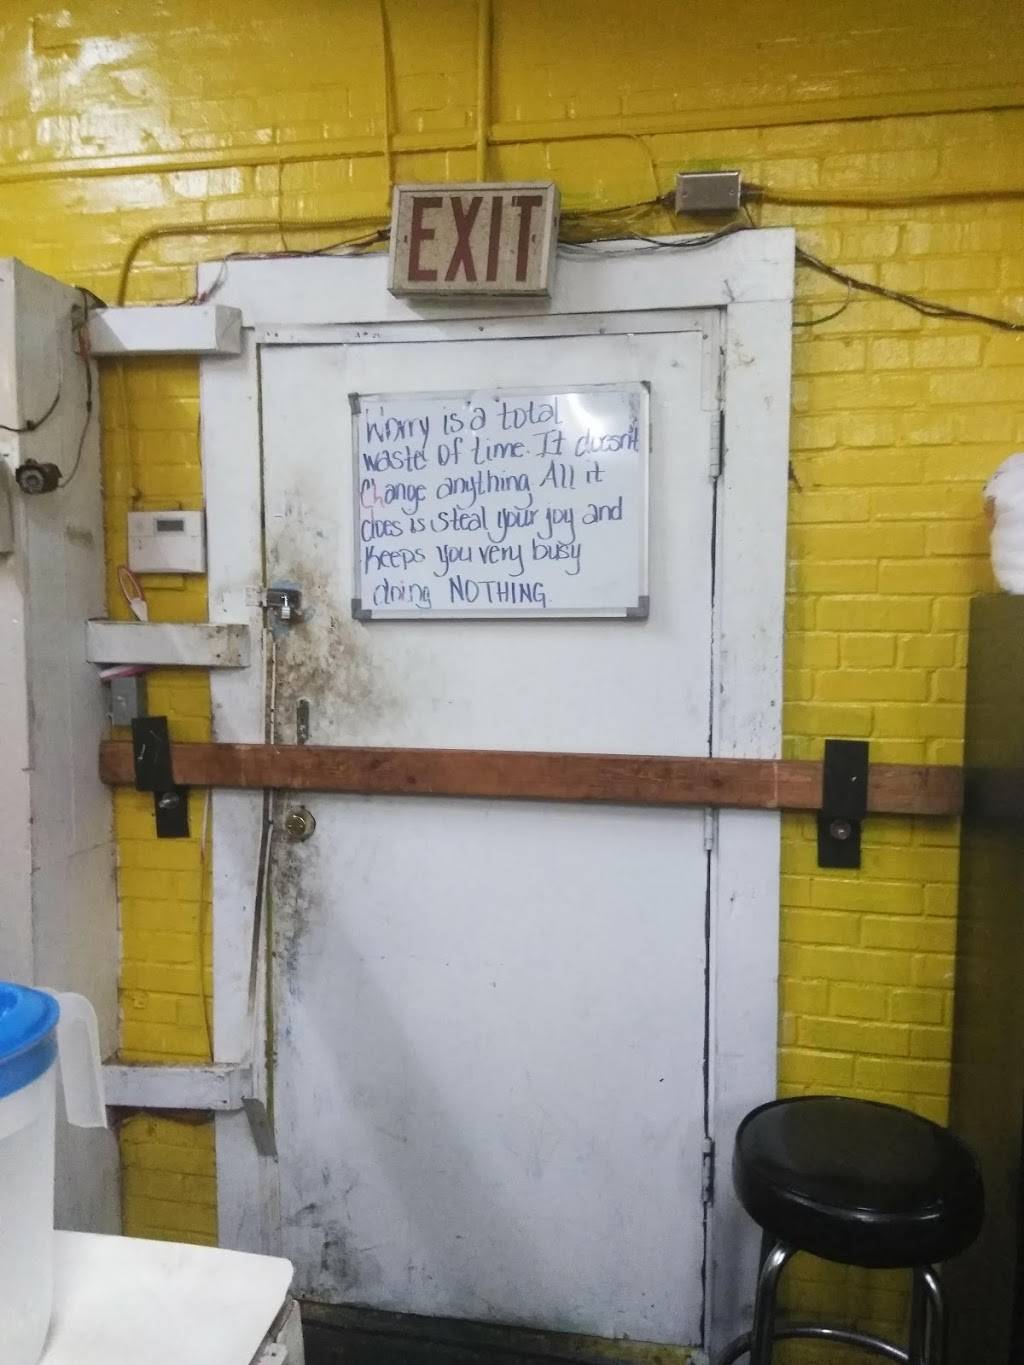 EXIT
Worry is a total
waste of time. It doesn't
Change anything. All it
does is steal your joy and
keeps you very busy
doing NOTHING.